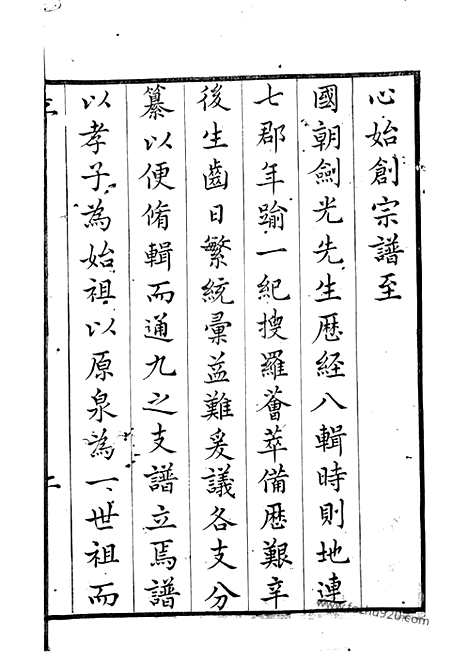 心始創宗譜至
國朝劍光先生歷经八輯時則地連
七郡年踰一紀搜羅薈萃備歷艱辛
後生齒日繁統彙益難爰議各支分
纂以便脩輯而通九之支譜立焉譜
以孝子為始祖以原泉為一世祖而